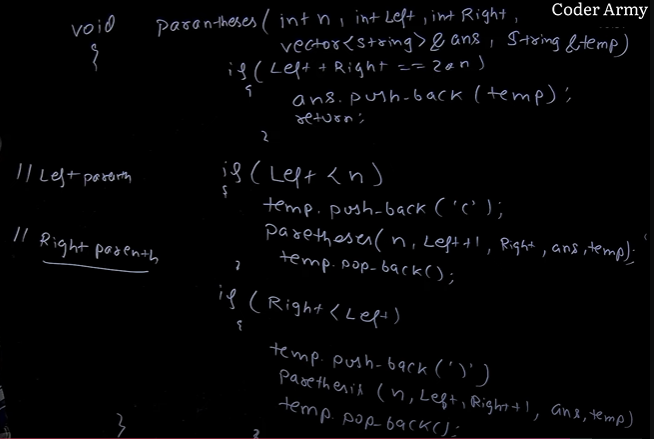 Coder Army
void parantheses(int n, int Left, int Right,
vector<string>& ans, String &temp)
{
if(Left+Right == 2*n)
{
ans.push-back(temp);
return;
}
// Left parenth
if(Left<n)
{
temp.push-back('(');
paretheses(n, Left+1, Right, ans, temp);
// Right parenth
temp.pop_back();
}
if(Right<Left)
{
temp.push-back(')')
Parethesis(n, Left, Right+1, ans, temp)
temp.pop_back();
}
}